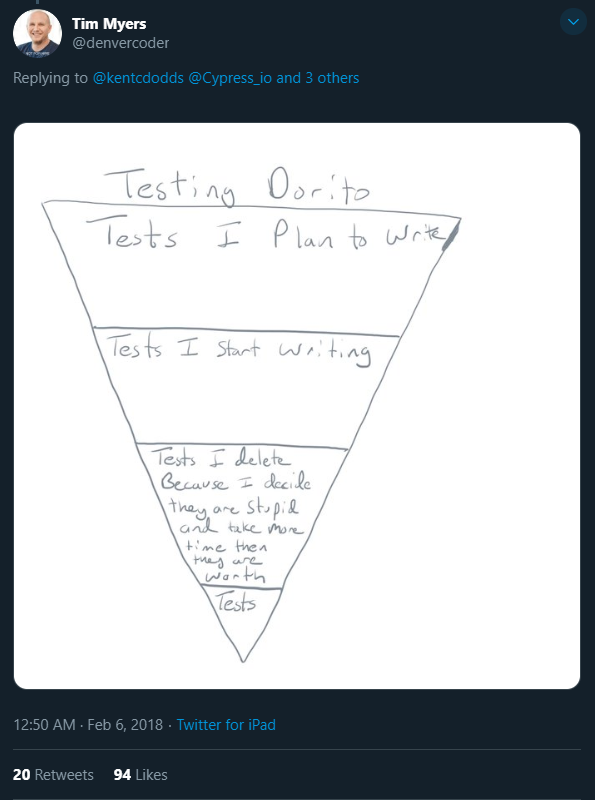 Tim Myers
@denvercoder
Replying to @kentcdodds @Cypress_io and 3 others
Testing Dorito
Tests I Plan to Write
Tests I Start writing
Tests I delete
Because I decide
they are stupid
and take more
time then
they are
worth
Tests
12:50 AM · Feb 6, 2018 · Twitter for iPad
20 Retweets 94 Likes